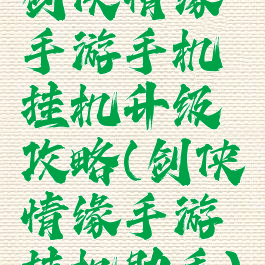 剑侠情缘
手游手机
挂机升级
攻略(剑侠
情缘手游
挂机助手)